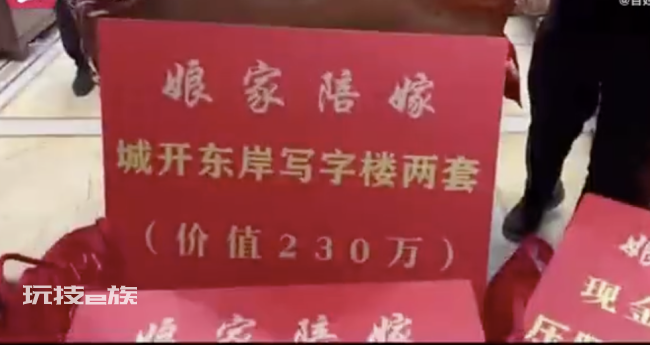 娘家陪嫁
城开东岸写字楼两套
（价值230万）
娘家陪嫁
娘
现金
压
玩技e族